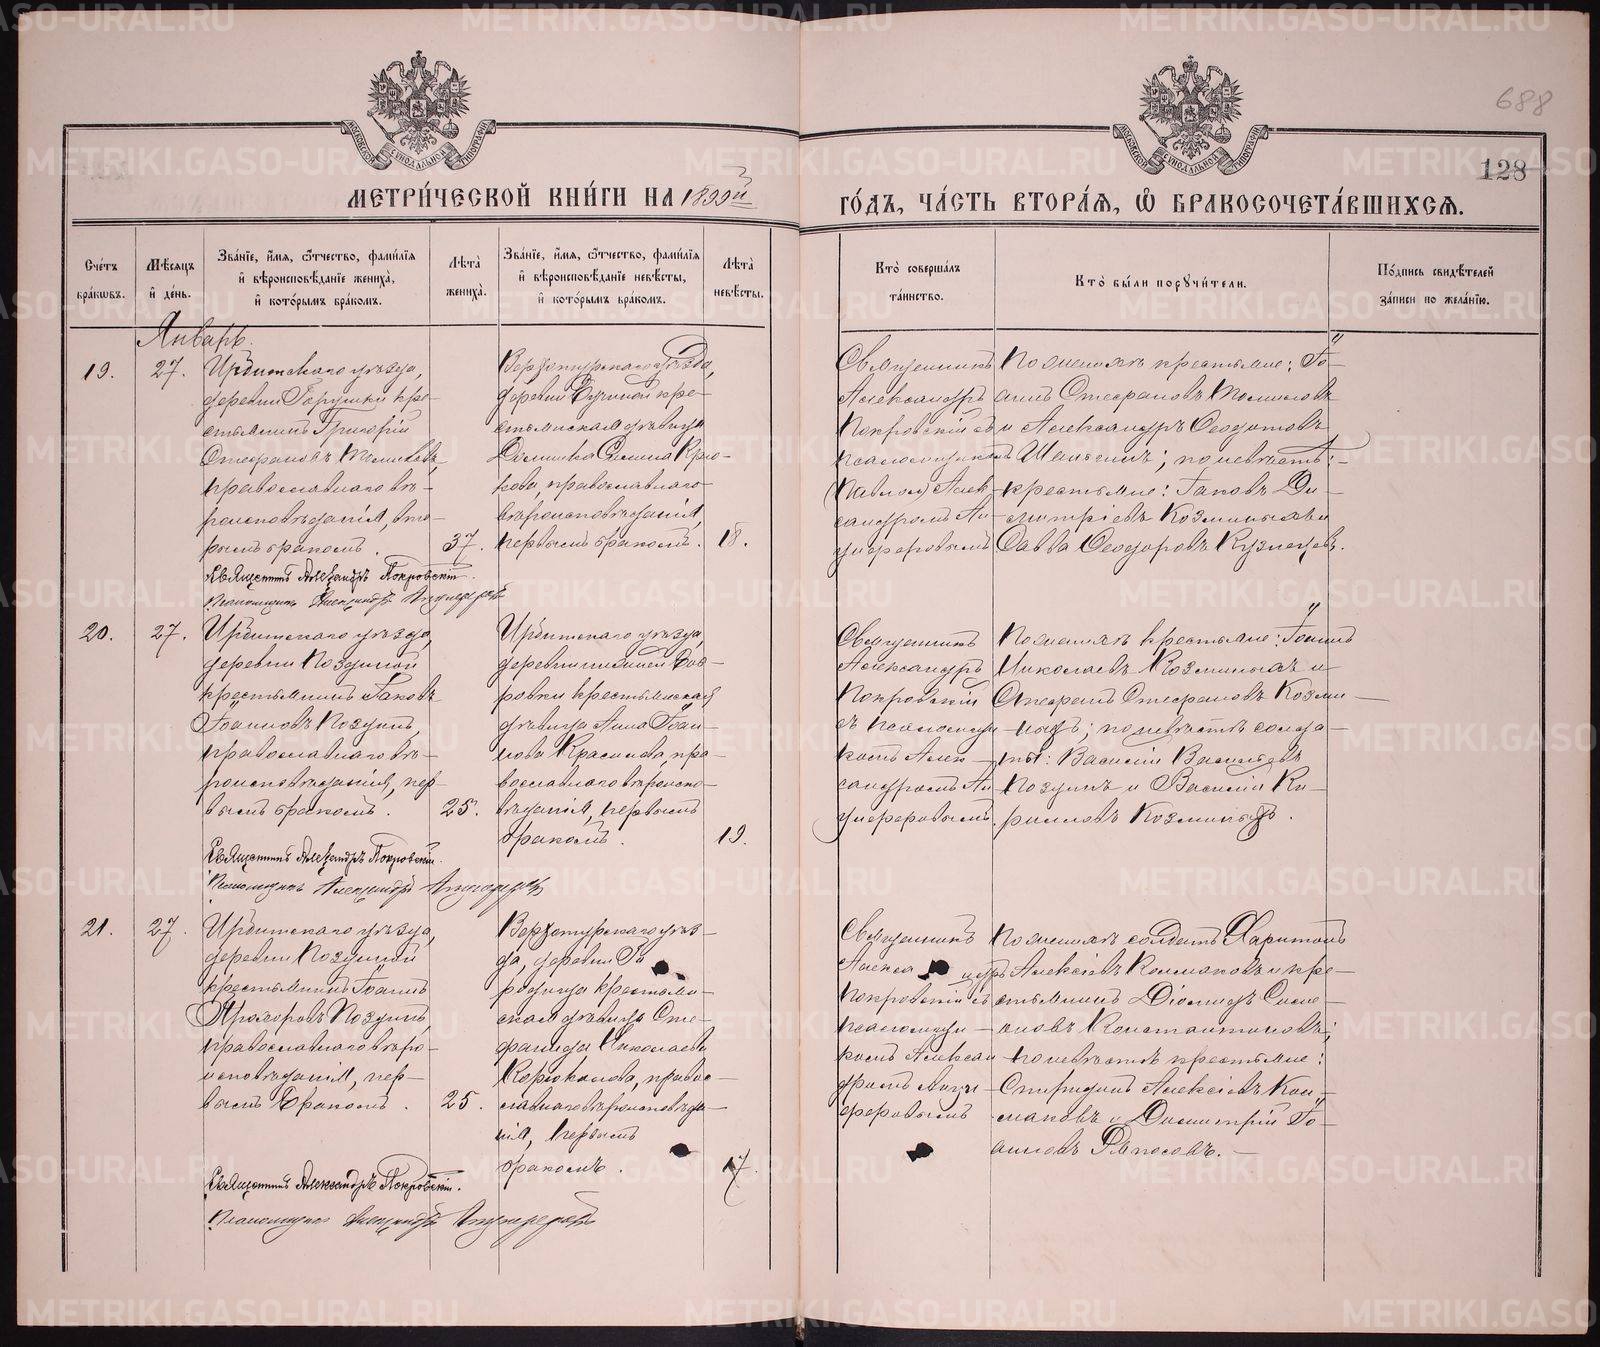 688
128
МОСКОВСКОЙ СѴНОДАЛЬНОЙ ТИПОГРАФІИ
МОСКОВСКОЙ СѴНОДАЛЬНОЙ ТИПОГРАФІИ
МЕТРИ́ЧЕСКОЙ КНИ́ГИ НА 1899й
ГО́ДЪ, ЧА́СТЬ ВТОРА́Я, Ѽ БРАКОСОЧЕТА́ВШИХСЯ.
Сче́тъ бра́кѡвъ.
Мѣ́сяцъ и́ де́нь.
Зва́нїе, и́мя, ѻ́тчество, фами́лїя
и́ вѣроисповѣ́данїе жениха̀,
и́ кото́рымъ бра́комъ.
Лѣ́та̀ жениха̀.
Зва́нїе, и́мя, ѻ́тчество, фами́лїя
и́ вѣроисповѣ́данїе невѣ́сты,
и́ кото́рымъ бра́комъ.
Лѣ́та̀ невѣ́сты.
Кто̀ соверша́лъ та́инство.
Кто̀ бы́ли порꙋчи́тели.
По́дпись свидѣ́телей за́писи по жела́нїю.
Январь.
19.
27.
Ирбитскаго уѣзда,
деревни кре-
стьянинъ Григорій
Стефановъ
православнаго вѣ-
роисповѣданія, вто-
рымъ бракомъ.
37.
Верхотурскаго уѣзда,
деревни кре-
стьянская дѣвица
Крю-
кова, православнаго
вѣроисповѣданія,
первымъ бракомъ.
18.
Священникъ
Александръ
Покровскій съ
псаломщикомъ
Алек-
сандромъ Ан-
циферовымъ
По женихѣ крестьяне: Іо-
аннъ Стефановъ
и Александръ Ѳеодотовъ
; по невѣстѣ:
крестьяне: Іаковъ Ди-
митріевъ Козминыхъ и
Савва Ѳеодоровъ Кузнецовъ.
Священникъ Александръ Покровскій.
Псаломщикъ Александръ Анциферовъ
20.
27.
Ирбитскаго уѣзда,
деревни Позд
крестьянинъ Іаковъ
Іоанновъ
православнаго вѣ-
роисповѣданія, пер-
вымъ бракомъ.
25.
Ирбитскаго уѣзда,
деревни Боб-
ровки крестьянская
дѣвица Анна Іоан-
нова Красилова, пра-
вославнаго вѣроиспо-
вѣданія, первымъ
бракомъ.
19.
Священникъ
Александръ
Покровскій
съ псаломщи-
комъ Алек-
сандромъ Ан-
циферовымъ.
По женихѣ крестьяне: Іоаннъ
Николаевъ Козминыхъ и
Стефанъ Стефановъ Козми-
ныхъ; по невѣстѣ солда-
ты: Василій Васильевъ
и Василій Ки-
рилловъ Козминыхъ.
Священникъ Александръ Покровскій.
Псаломщикъ Александръ Анциферовъ
21.
27.
Ирбитскаго уѣзда,
деревни
крестьянинъ Іоаннъ
Прохоровъ
православнаго вѣро-
исповѣданія, пер-
вымъ бракомъ.
25.
Верхотурскаго уѣз-
да, деревни Го
родища крестьян-
ская дѣвица Сте-
фанида Николаева
Корюкалова, правос-
лавнаго вѣроисповѣда-
нія, первымъ
бракомъ.
17.
Священникъ
Александръ
Покровскій съ
псаломщи-
комъ Алексан-
дромъ Анци-
феровымъ
По женихѣ солдатъ Харитонъ
Алексіевъ Колмаковъ и кре-
стьянинъ Діомидъ Симо-
новъ Константиновъ;
по невѣстѣ крестьяне:
Спиридонъ Алексіевъ Кол-
маковъ и Димитрій Іо-
анновъ Ряпосовъ.
Священникъ Александръ Покровскій.
Псаломщикъ Александръ Анциферовъ
METRIKI.GASO-URAL.RU